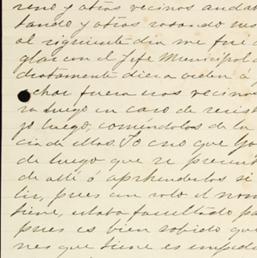 reno y otros vecinos andab
tando y otros rotando mi
al siguiente dia me fué a
glar con el Jefe Municipal
diatamente diera orden á
char fuera nos vecinos
ra luego en caso de resis
yo luego, comiéndolos de la
cia de ellos. Yo creo que yo
de luego que se presente
de allí ó aprhenderlos si
lio, pues un solo el nom
tiene, estaba facultado pa
pues es bien sabido que
nes que tiene es impedi